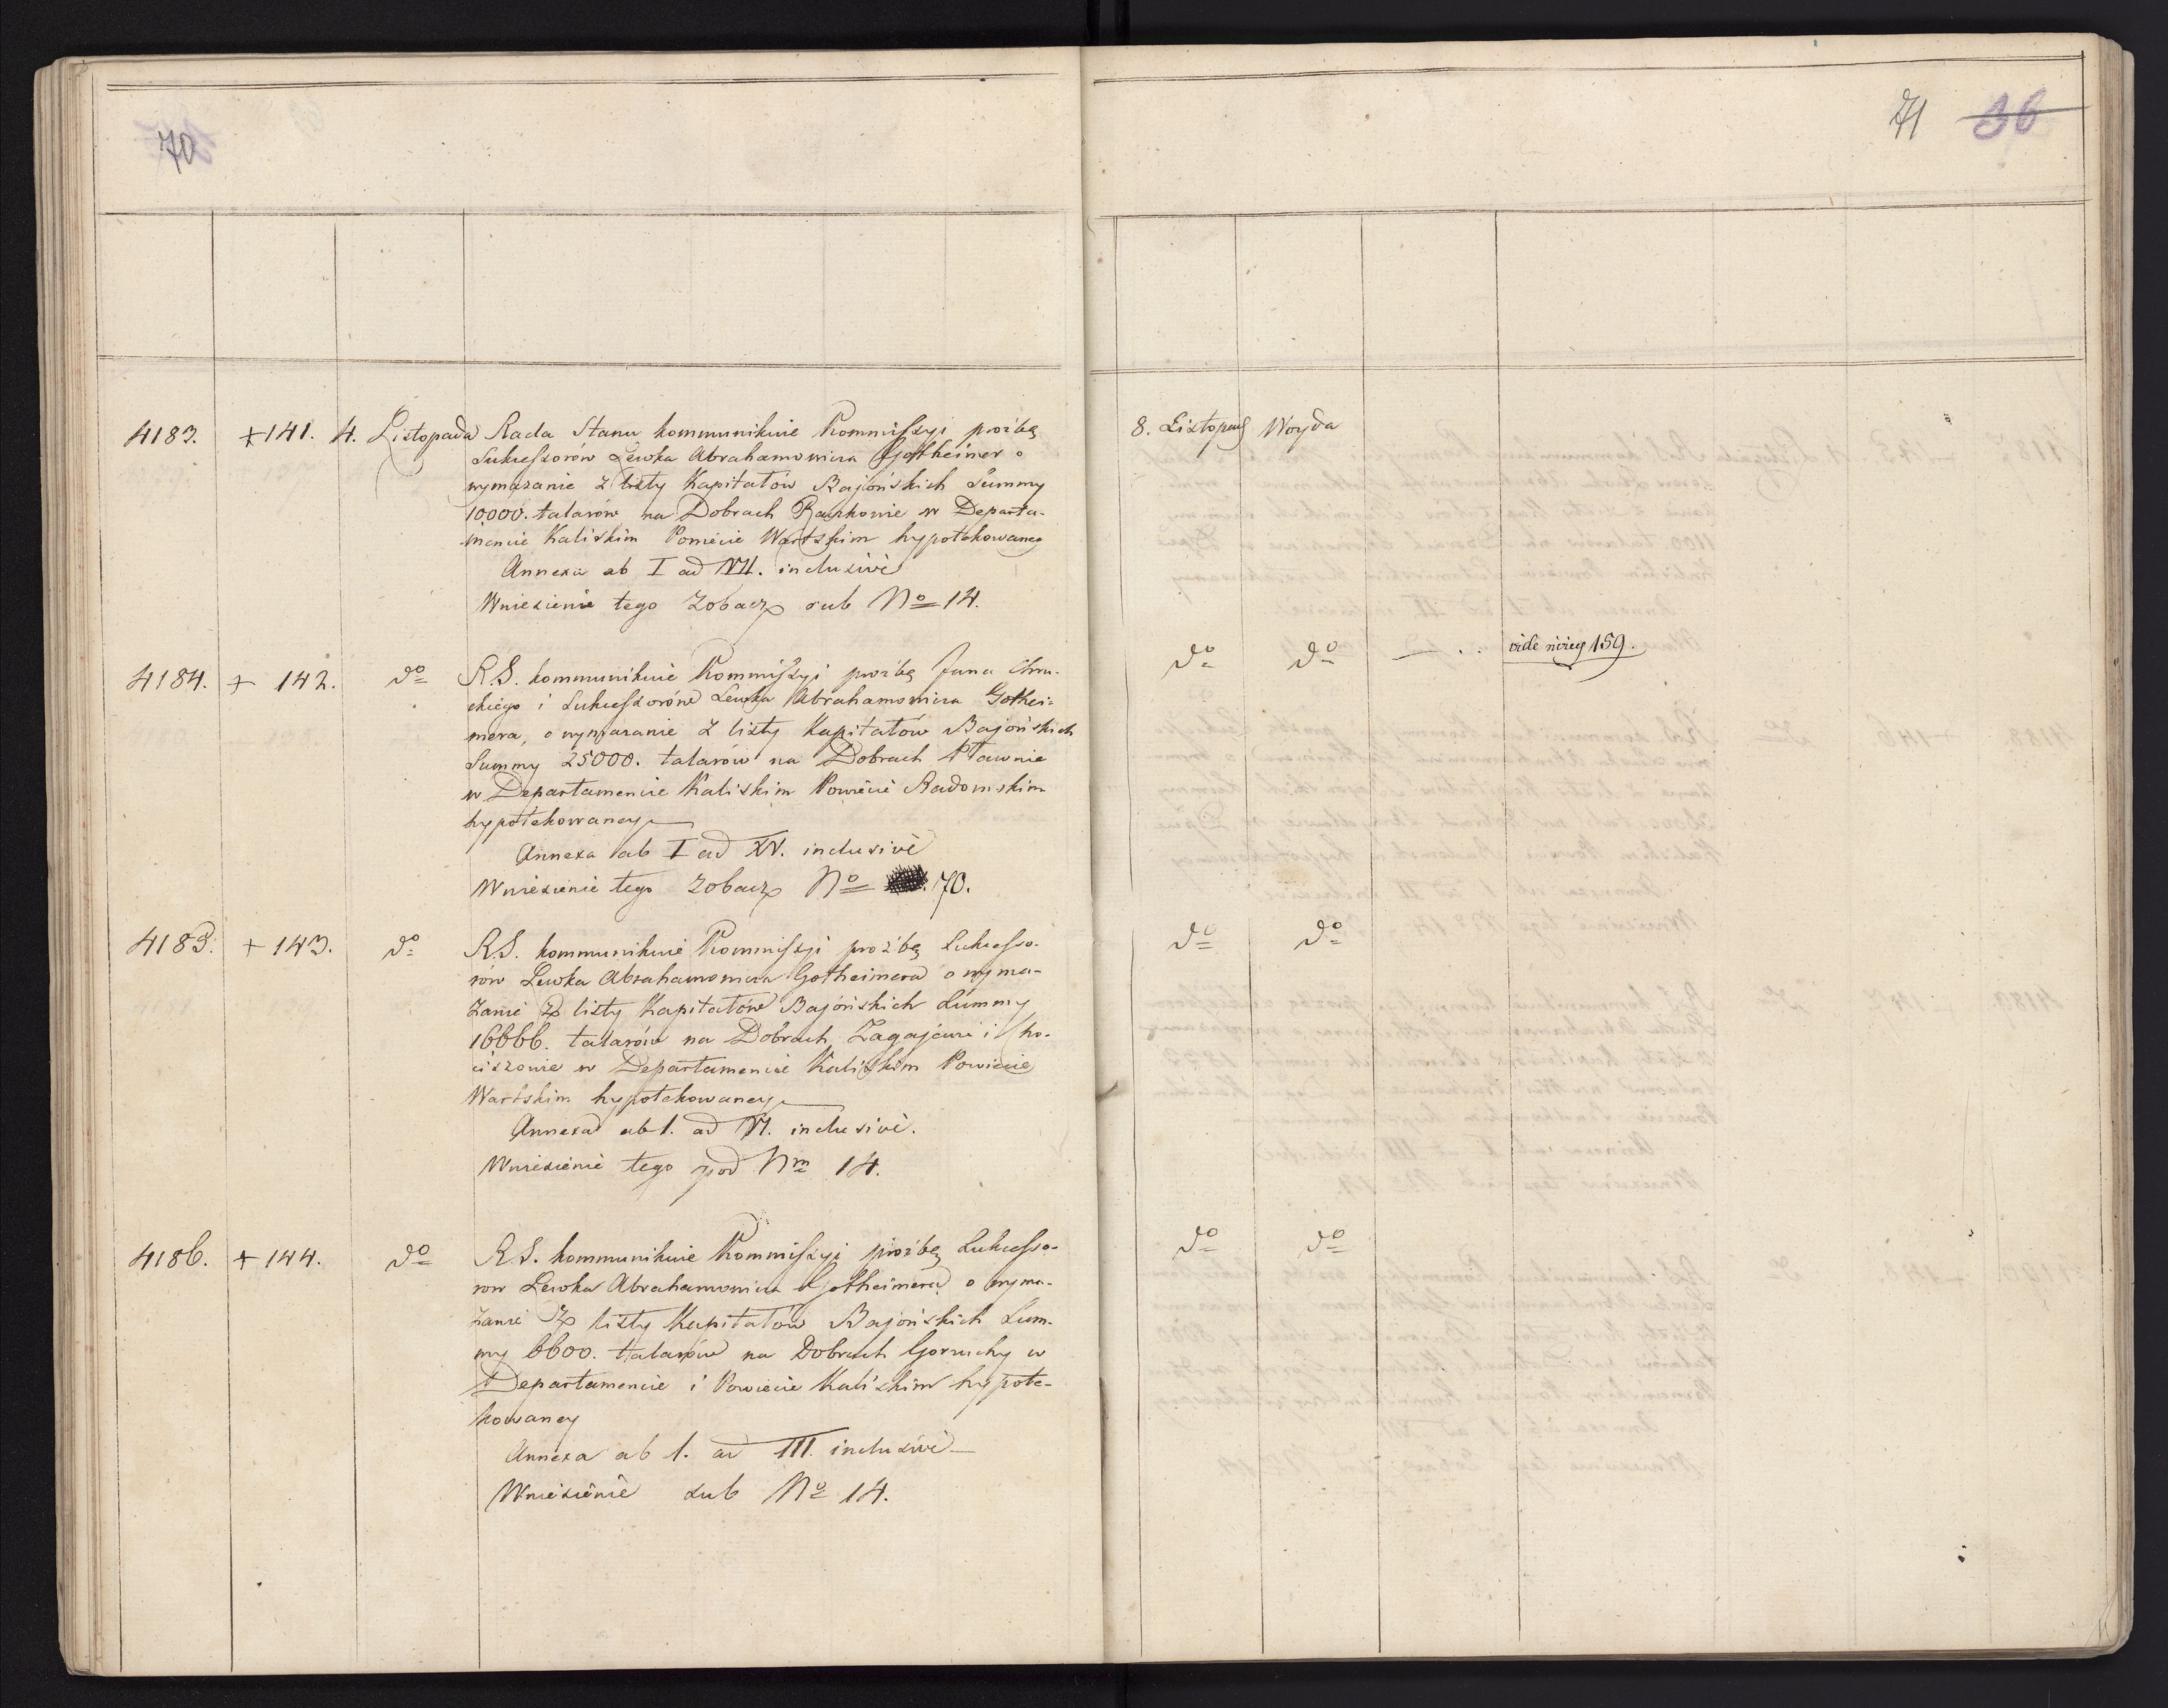 70
4183. + 141. 4. Listopada Rada Stanu kommunikuie Kommissyi prożbę
Sukcessorow Lewka Abrahamowicza Gottheimer o
wymazanie z listy Kapitałów Bajońskich Summy
10,000. talarów na Dobrach w Departa-
mencie Kaliskim Powiecie Wartskim hypotekowaney
Annexa ab I ad VII. inclusive
Wniesienie tego zobacz sub No 14.
4184. + 142. do R.S. kommunikuie Kommissyi prożbę Jana Chru-
ckiego i Sukcessorów Lewka Abrahamowicza Gothei-
mera, o wymazanie z listy Kapitałów Bajońskich
Summy 25000. talarów na Dobrach Pławnie
w Departamencie Kaliskim Powiecie Radomskim
hypotekowaney
Annexa ab I ad XV. inclusive
Wniesienie tego zobacz No 70.
4185. + 143. do R.S. kommunikuie Kommissyi prożbę Sukcesso-
rów Lewka Abrahamowicza Gotheimera o wyma-
zanie z listy Kapitałów Bajońskich Summy
16666. talarów na Dobrach i Cho-
ciszowie w Departamencie Kaliskim Powiecie
Wartskim hypotekowaney
Annexa ab 1. ad VI. inclusive.
Wniesienie tego pod Nm 14.
4186. + 144. do R.S. kommunikuie Kommissyi prożbę Sukcesso-
row Lewka Abrahamowicza Gotheimera o wyma-
zanie z listy Kapitałów Bajońskich Sum-
my 6600. talarów na Dobrach w
Departamencie i Powiecie Kaliskim hypote-
kowaney
Annexa ab 1. ad III. inclusive
Wniesienie sub No 14.
71 36
8. Listopad Woyda
do do vide niżey 159.
do do
do do